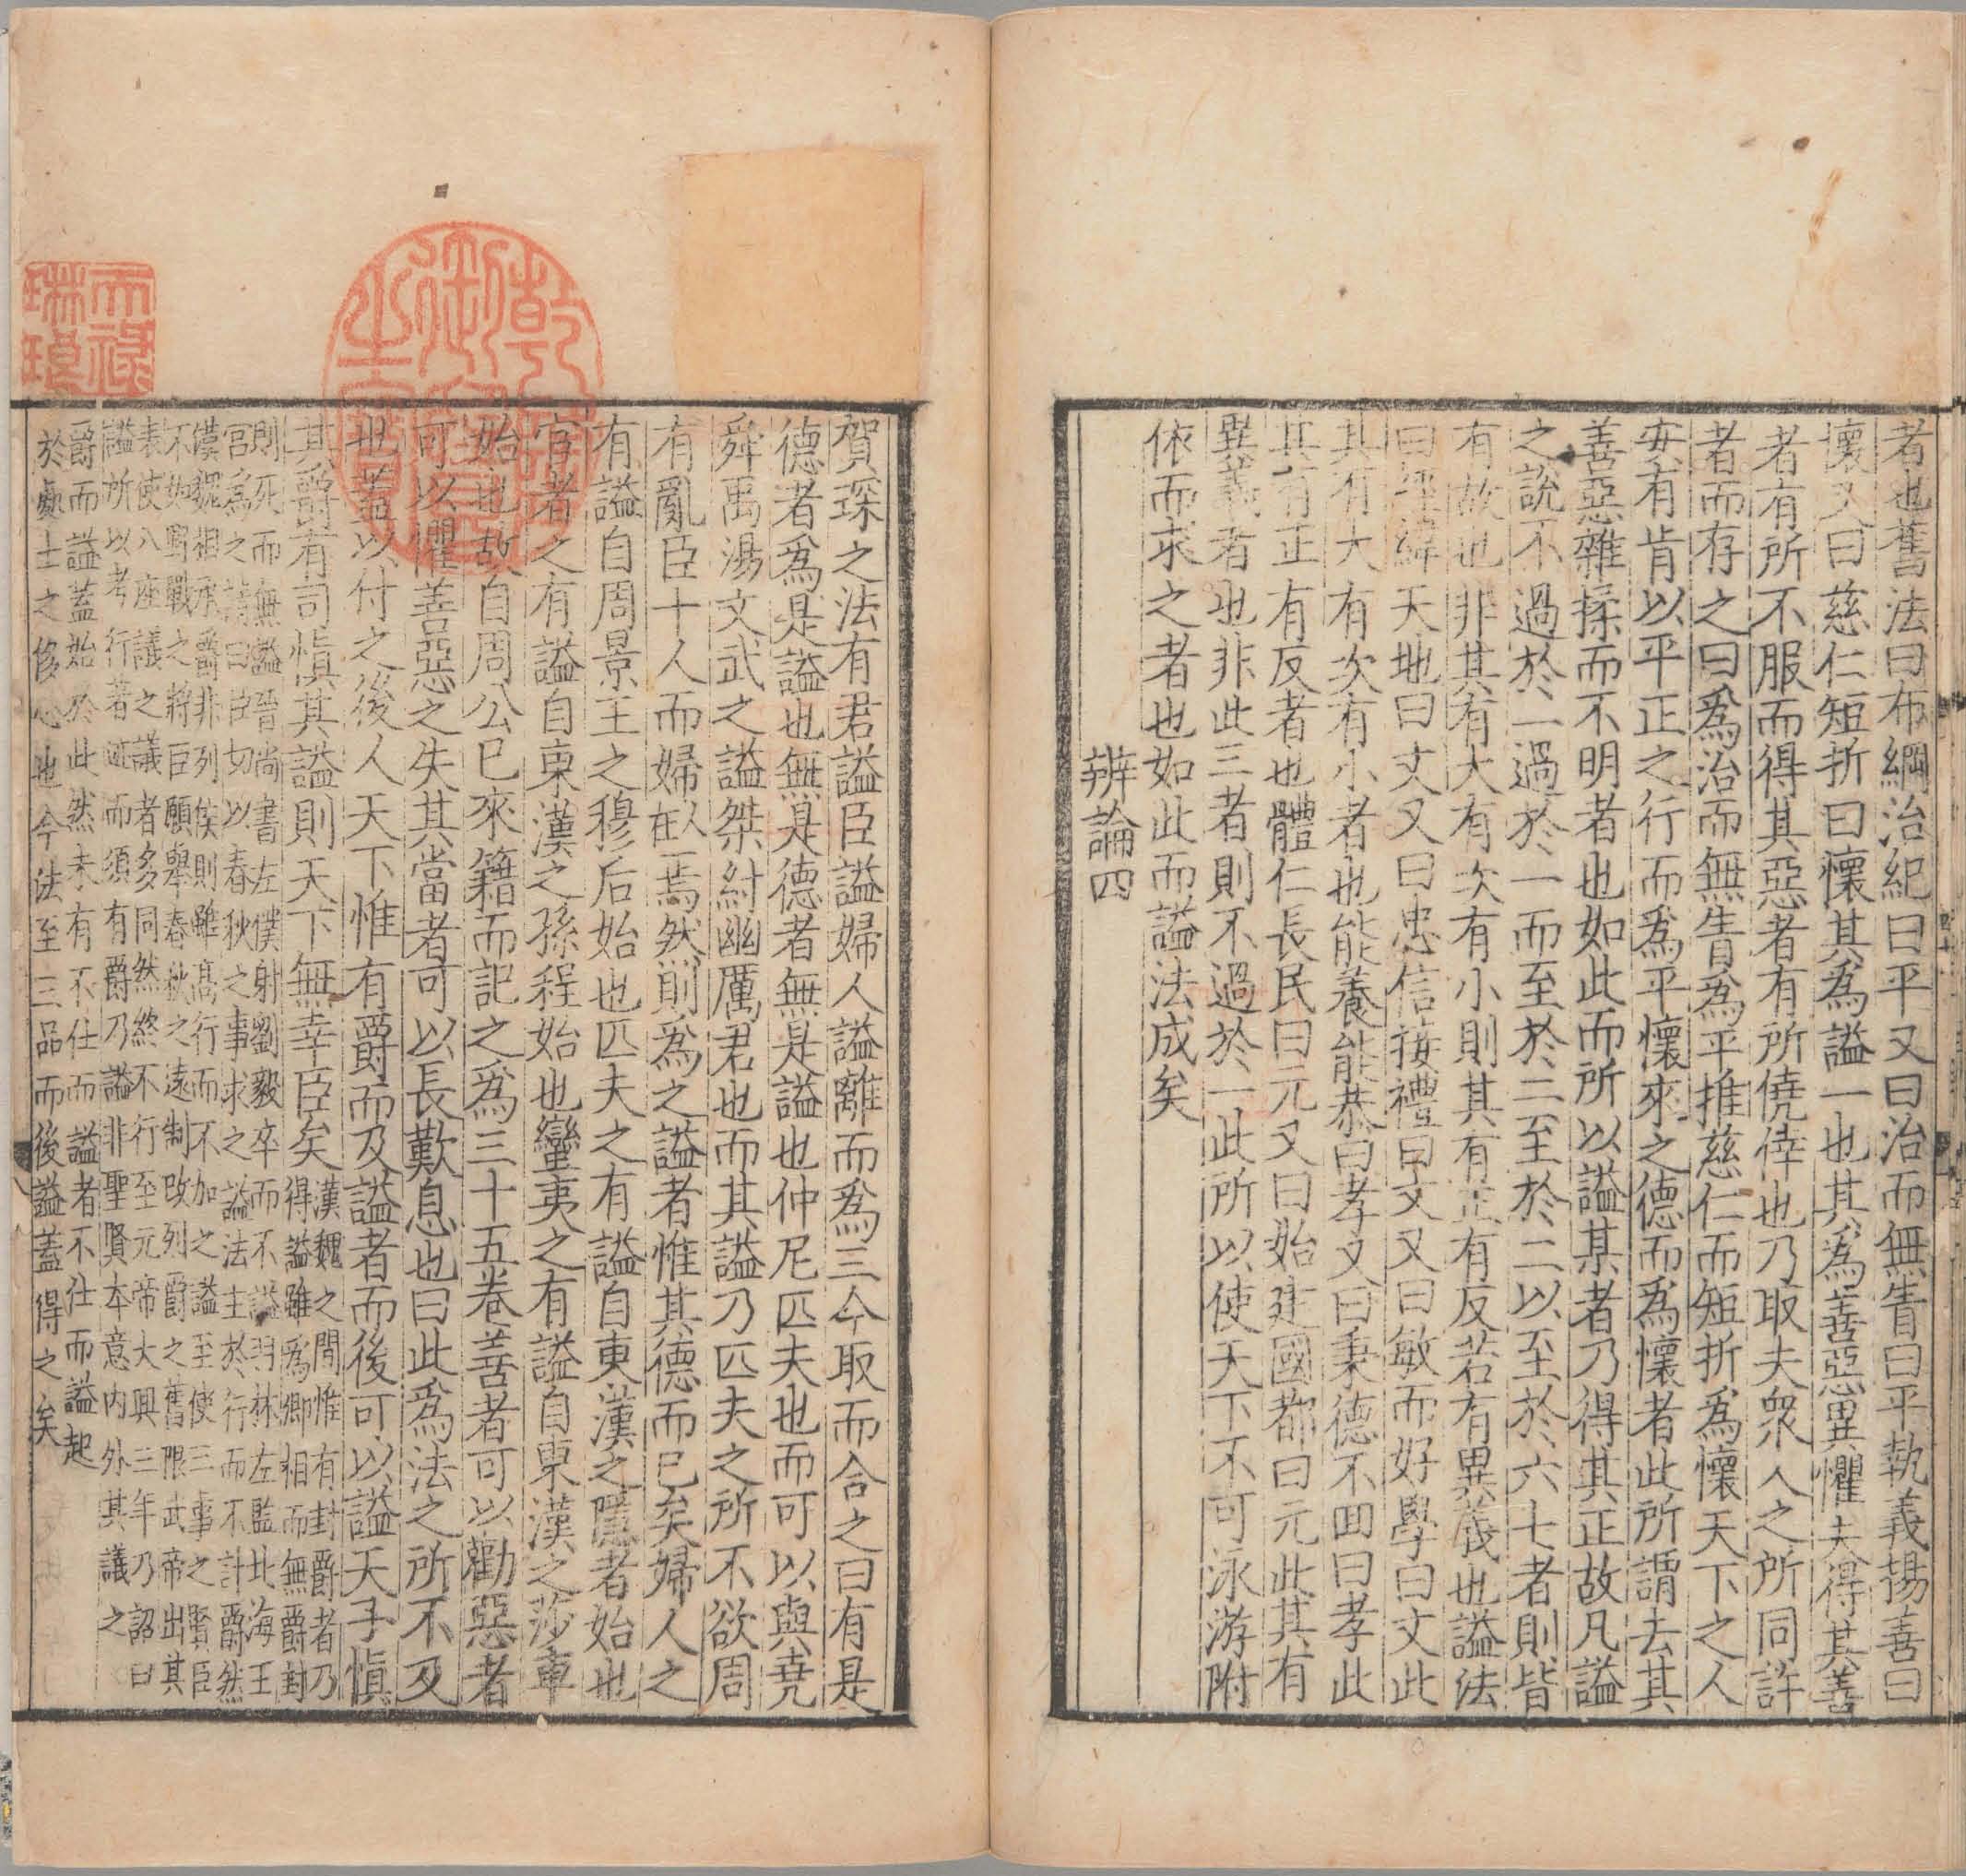 者也舊法曰布綱治紀曰平又曰治而無眚曰平執義揚善曰
懷又曰慈仁短折曰懷其爲謚一也其爲善惡異懼夫得其善
者有所不服而得其惡者有所僥倖也乃取夫衆人之所同許
者而存之曰爲治而無眚爲平推慈仁而短折爲懷天下之人
安有肯以平正之行而爲平懷來之德而爲懷者此所謂去其
善惡雜揉而不明者也如此而所以謚某者乃得其正故凡謚
之說不過於一過於一而至於二至於二以至於六七者則皆
有故也非其有大有次有小則其有正有反若有異義也謚法
曰經緯天地曰文又曰忠信接禮曰文又曰敏而好學曰文此
其有大有次有小者也能養能恭曰孝又曰秉德不回曰孝此
其有正有反者也體仁長民曰元又曰始建國都曰元此其有
異義者也非此三者則不過於一此所以使天下不可泳游附
依而求之者也如此而謚法成矣
辨論四
賀琛之法有君謚臣謚婦人謚離而爲三今取而合之曰有是
德者爲是謚也無是德者無是謚也仲尼匹夫也而可以與堯
舜禹湯文武之謚桀紂幽厲君也而其謚乃匹夫之所不欲周
有亂臣十人而婦人在焉然則爲之謚者惟其德而已矣婦人之
有謚自周景王之穆后始也匹夫之有謚自東漢之隱者始也
宦者之有謚自東漢之孫程始也蠻夷之有謚自東漢之莎車
始也故自周公已來籍而記之爲三十五卷善者可以勸惡者
可以懼善惡之失其當者可以長歎息也曰此爲法之所不及
也蓋以付之後人天下惟有爵而及謚者而後可以謚天子愼
其爵有司愼其謚則天下無幸臣矣
漢魏之間惟有封爵者乃
得謚雖爲卿相而無爵封
則死而無謚晉尚書左僕射劉毅卒而不謚羽林左監北海王
宮爲之請曰臣切以春秋之事求之謚法主於行而不計爵然
漢魏相承爵非列侯則雖髙行而不加之謚至使三事之賢臣
不如野戰之將臣願舉春秋之遠制改列爵之舊限武帝出其
表使八座議之議者多同然終不行至元帝大興三年乃詔曰
謚所以考行著迹而須有爵乃謚非聖賢本意內外其議之
爵而謚蓋始於此然未有不仕而謚者不仕而謚起
於處士之後也今法至三品而後謚蓋得之矣
天祿
琳琅
乾隆
御覽
之寶